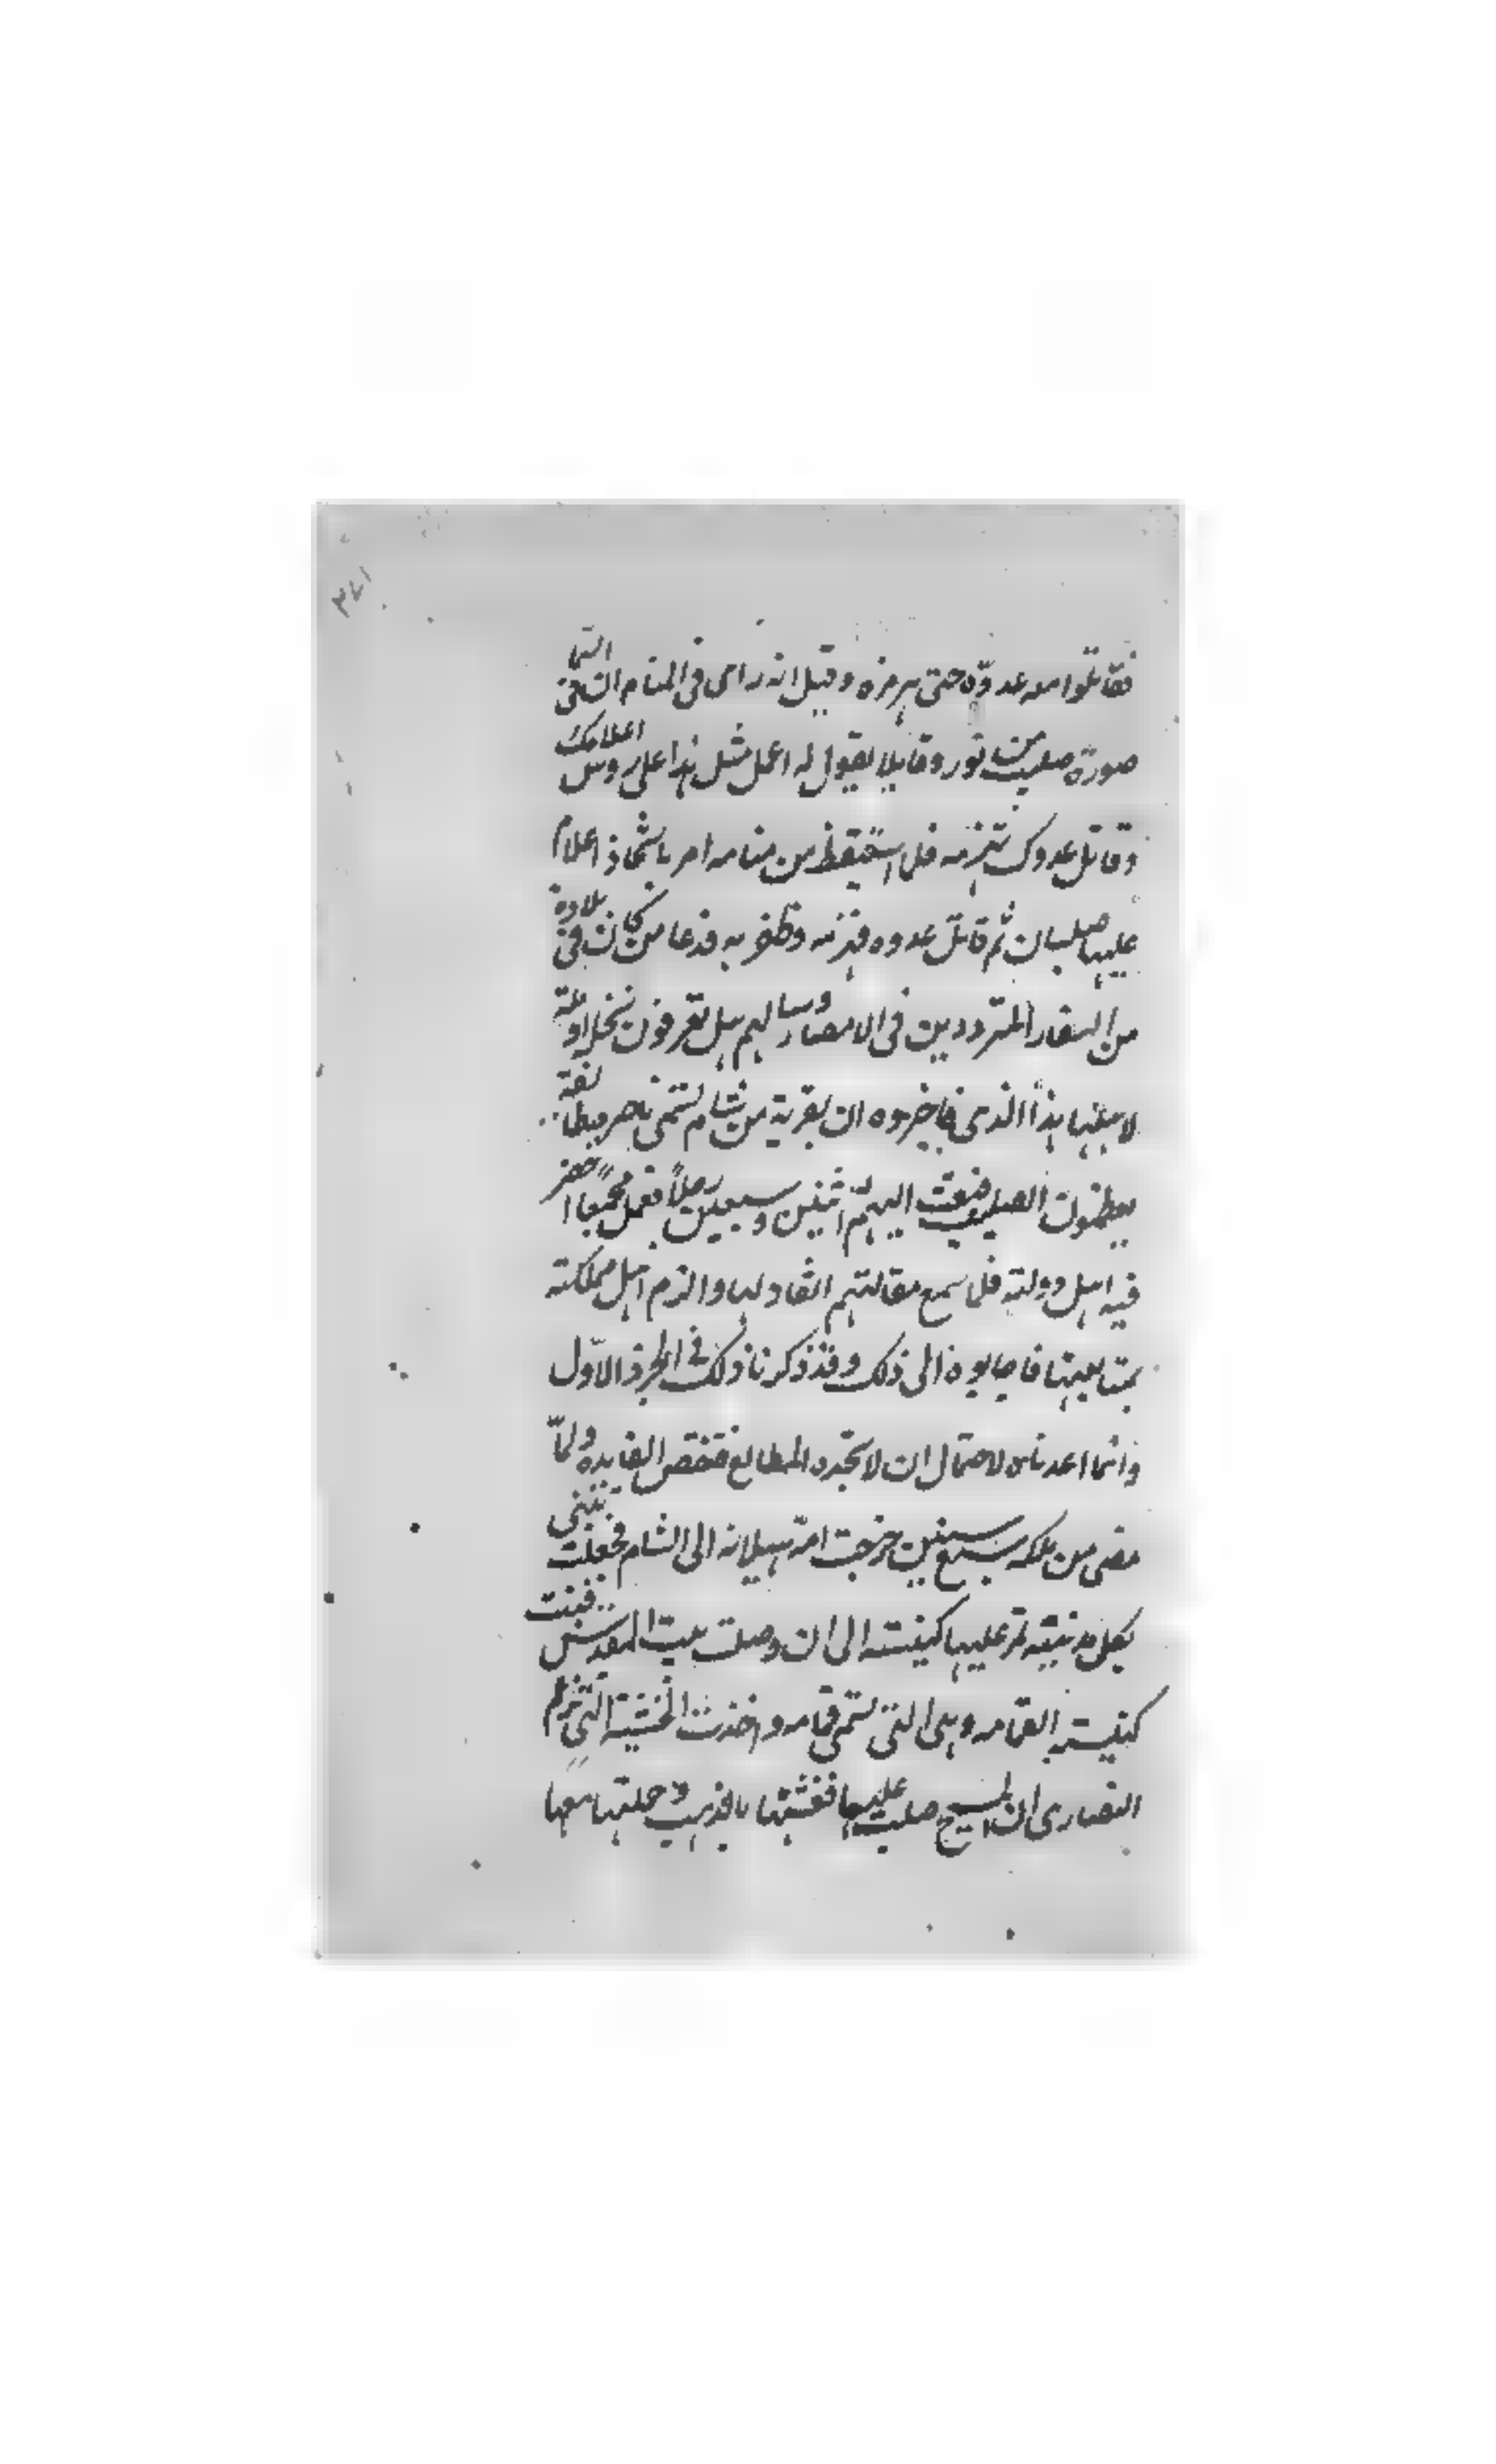 ٣٤١
فقاتلوا معه عدوّه حتى هزمزه وقيل انه راى فى المنام الثانى السما
صورة صليب من نور وقايلا يقول له اعمل مثل هذا على روس اعلامك
وقاتل عدوك تهزمه فلما استيقظ من منامه امر باتخاذ اعلام
عليها صلبان ثم قاتل عدوه فهزمه وظفر به فدعا من كان فى بلاده
من السفار المترددين فى الامصار وسالهم هل تعرفون نحلا وملة
لا هذا الذى فاخبروه ان بقرية من شام تسمى ناصره طايفة
يعظمون الصليب فبعث اليهم اثنين وسبعين رجلا فعمل مجمعا احضر
فيه اهل دولته فلما سمع مقالتهم انقاد لها والزم اهل مملكته
بمتابعتها فاجابوه الى ذلك وقد ذكرنا ذلك فى الجزء الاوّل
وانما اعدناه لاحتمال ان لا تجده المطالع فتنقص الفايده ولمّا
مضى من ملكه سبع سنين خرجت امّه هيلانه الى الشام فجعلت تبنى
بكل مدينة تمر عليها كنيسته الى ان وصلت بيت المقدس فبنت
كنيسة القمامه وهى التى تسمى قمامه واخذت الخشبة التى تزعم
النصارى ان المسيح صلب عليها فغشتها بالذهب وحملتها معها